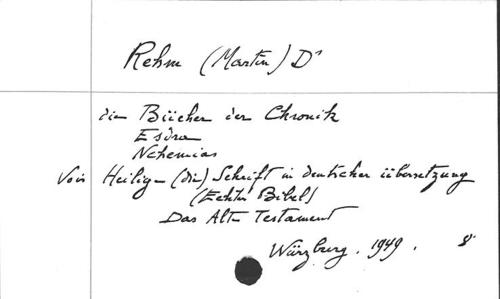 Rehm (Martin) Dr
die Bücher der Chronik
Esdra
Nehemias
Voir Heilige (die) Schrift in deutscher übersetzung
(Echter Bibel)
Das Alte Testament
Würzburg. 1949. 8°